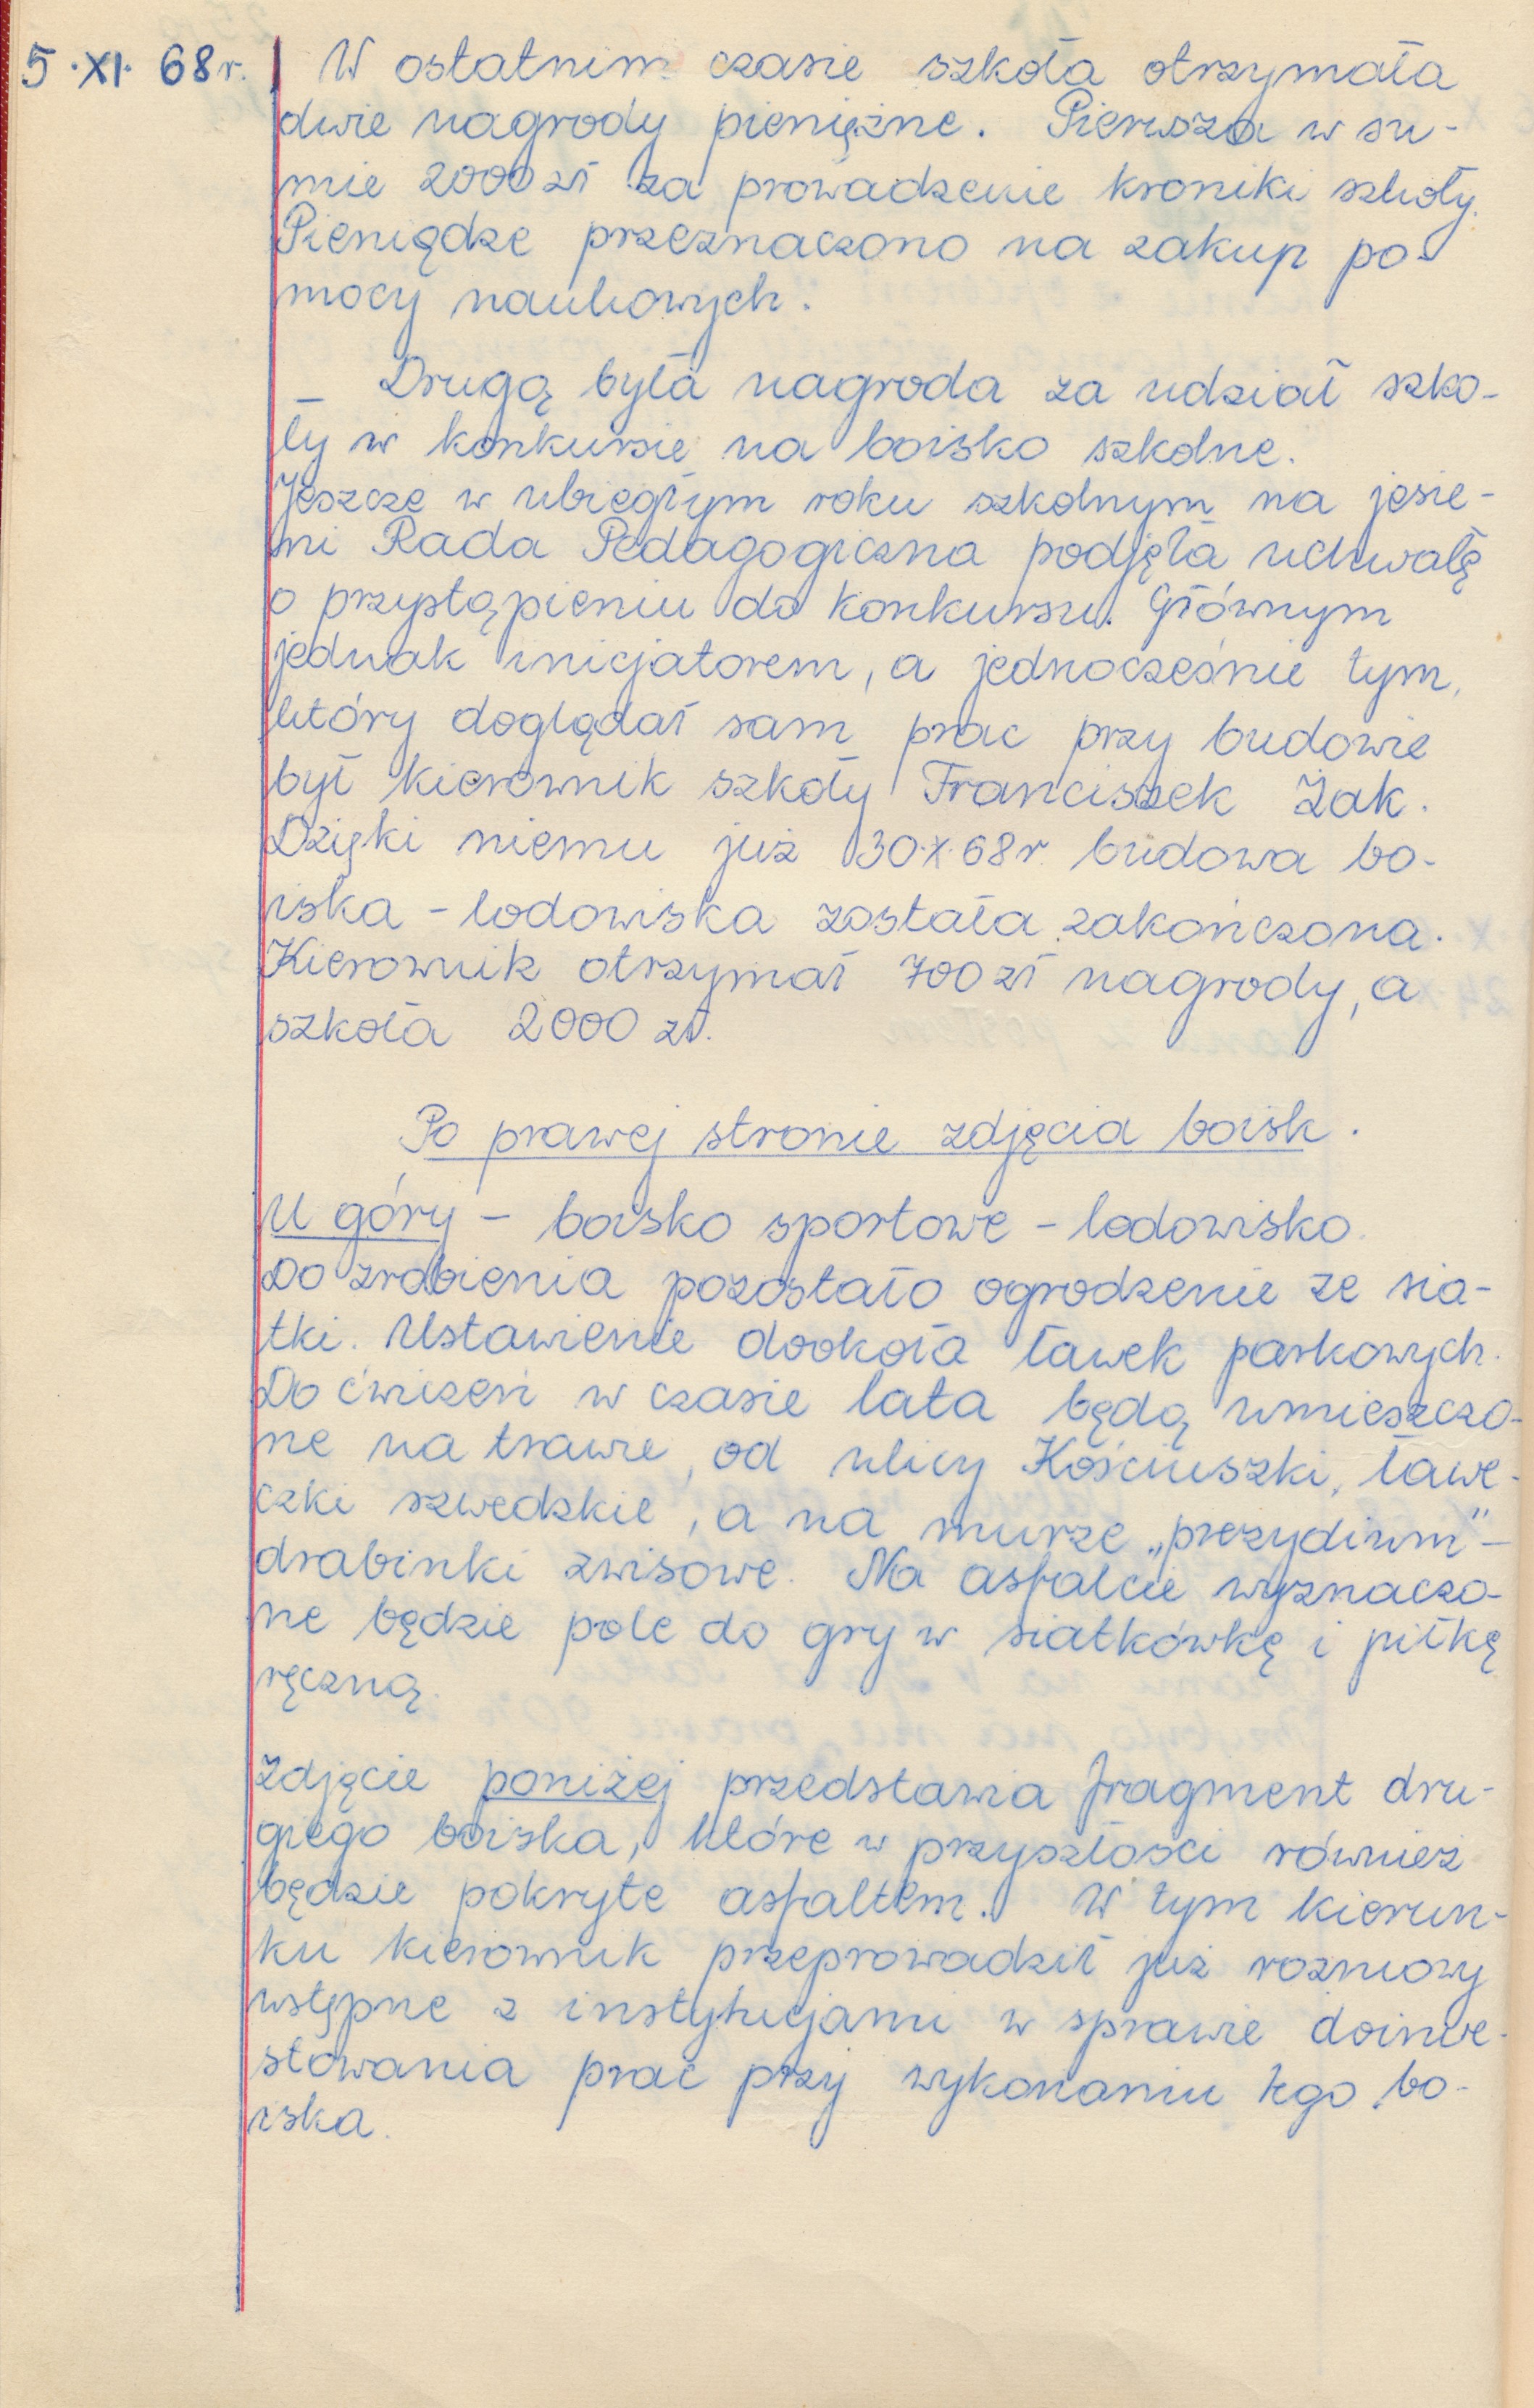 5.XI.68r.
W ostatnim czasie szkoła otrzymała
dwie nagrody pieniężne. Pierwsza w su-
mie 2000 zł za prowadzenie kroniki szkoły.
Pieniądze przeznaczono na zakup po-
mocy naukowych.
– Drugą była nagroda za udział szko-
ły w konkursie na boisko szkolne.
Jeszcze w ubiegłym roku szkolnym na jesie-
ni Rada Pedagogiczna podjęła uchwałę
o przystąpieniu do konkursu. Głównym
jednak inicjatorem, a jednocześnie tym,
który doglądał sam prac przy budowie
był kierownik szkoły Franciszek Żak.
Dzięki niemu już 30.X.68r. budowa bo-
iska – lodowiska została zakończona.
Kierownik otrzymał 700 zł nagrody, a
szkoła 2000 zł.
Po prawej stronie zdjęcia boisk.
U góry – boisko sportowe – lodowisko.
Do zrobienia pozostało ogrodzenie ze sia-
tki. Ustawienie dookoła ławek parkowych.
Do ćwiczeń w czasie lata będą umieszczo-
ne na trawie, od ulicy Kościuszki, ławe-
czki szwedzkie, a na murze „prezydium" –
drabinki zwisowe. Na asfalcie wyznaczo-
ne będzie pole do gry w siatkówkę i piłkę
ręczną.
Zdjęcie poniżej przedstawia fragment dru-
giego boiska, które w przyszłości również
będzie pokryte asfaltem. W tym kierun-
ku kierownik przeprowadził już rozmowy
wstępne z instytucjami w sprawie doinwe-
stowania prac przy wykonaniu tego bo-
iska.